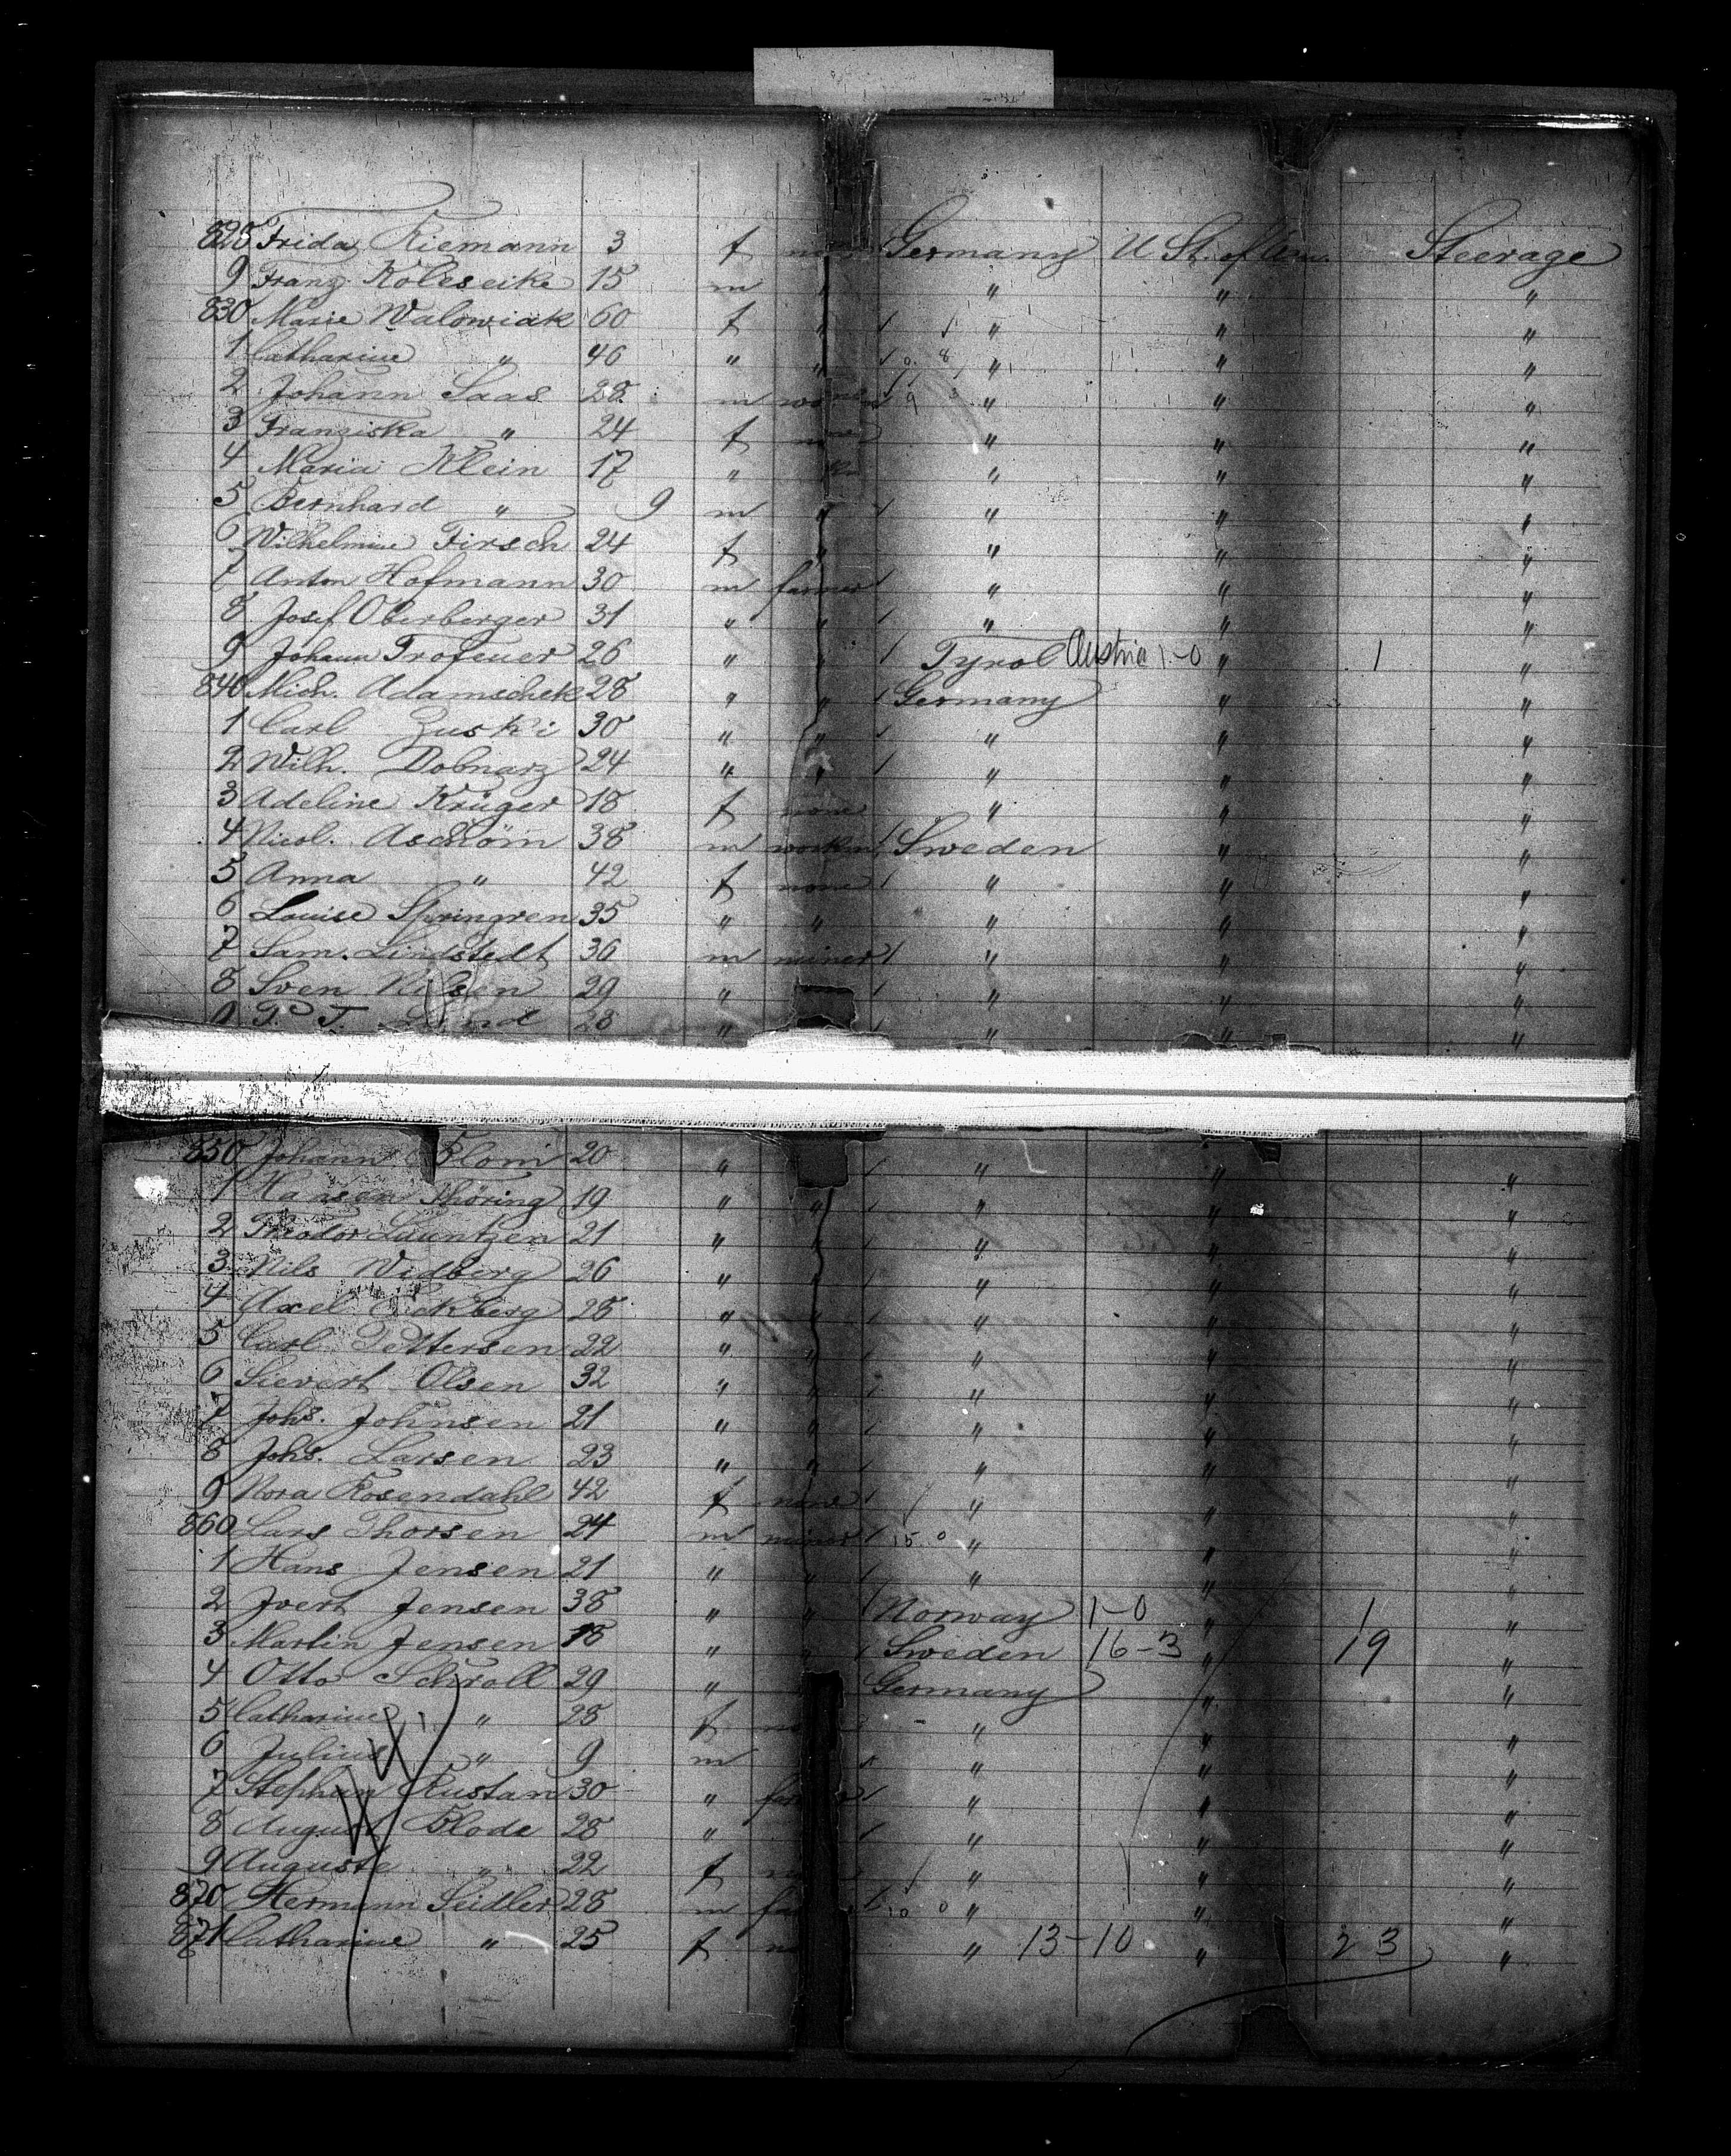 828 Frida Riemann 3 f Germany U St. of Am. Steerage
9 Franz Koleseike 15 m " " "
830 Marie Walowiak 60 f " " " "
1 Catharine " 46 " " " " "
2 Johann Saas 28 m " " "
3 Franziska " 24 f " " "
4 Maria Klein 17 " " " "
5 Bernhard " 9 m " " " "
6 Wilhelmine Firsch 24 f " " " "
7 Anton Hofmann 30 m farmer " " "
8 Josef Oberberger 31 " " " " "
9 Johann Trofeuer 26 " " Tyrol Austria 1-0 " 1 "
840 Mich. Adamschek 28 " " Germany " "
1 Carl Zuski 30 " " " " "
2 Wilh. Dobnarz 24 " " " " "
3 Adeline Krüger 18 f none " " "
4 Nicol. 38 m workm. Sweden " "
5 Anna " 42 f none " " "
6 Louise Springren 35 " " " " "
7 Sam. Lindstedt 36 m miner " " "
8 Sven Nilsen 29 " " " "
9 P. T. 28 " " " "
850 Johann 20 " " " "
1 Hansen Thöring 19 " " " " "
2 Theodor Launtzen 21 " " " " "
3 Nils Wedberg 26 " " " " "
4 Axel Eckberg 28 " " " " "
5 Carl Pettersen 22 " " " " "
6 Sievert Olsen 32 " " " " "
7 Johs. Johnsen 21 " " " " "
8 Johs. Larsen 23 " " " " "
9 Nora Rosendahl 42 f none " " "
860 Lars Thorsen 24 m miner 15 0 " " "
1 Hans Jensen 21 " " " " "
2 Jvert Jensen 38 " " Norway 1-0 " 1 "
3 Martin Jensen 18 " " Sweden 16-3 " 19 "
4 Otto Schroll 29 " Germany " "
5 Catharine " 28 f " " "
6 Julius " 9 m " " "
7 Stephan Rustan 30 " " " "
8 August Blode 28 " " " "
9 Auguste " 22 f " " "
870 Hermann Seidler 28 m 10 0 " " "
871 Catharine " 25 f " 13-10 " 23 "